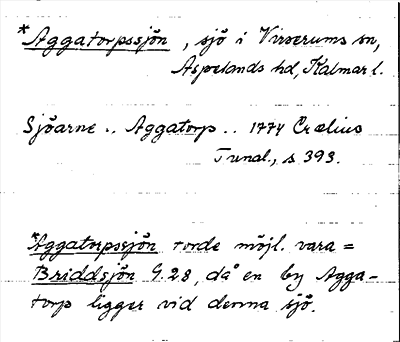 *Aggatorpssjön, sjö i Virserums sn,
Aspelands hd, Kalmar l.
Sjöarne .. Aggatorp .. 1774 Crælius
Tunal., s 393.
*Aggatorpssjön torde möjl. vara =
Briddsjön G.28, då en by Agga-
torp ligger vid denna sjö.